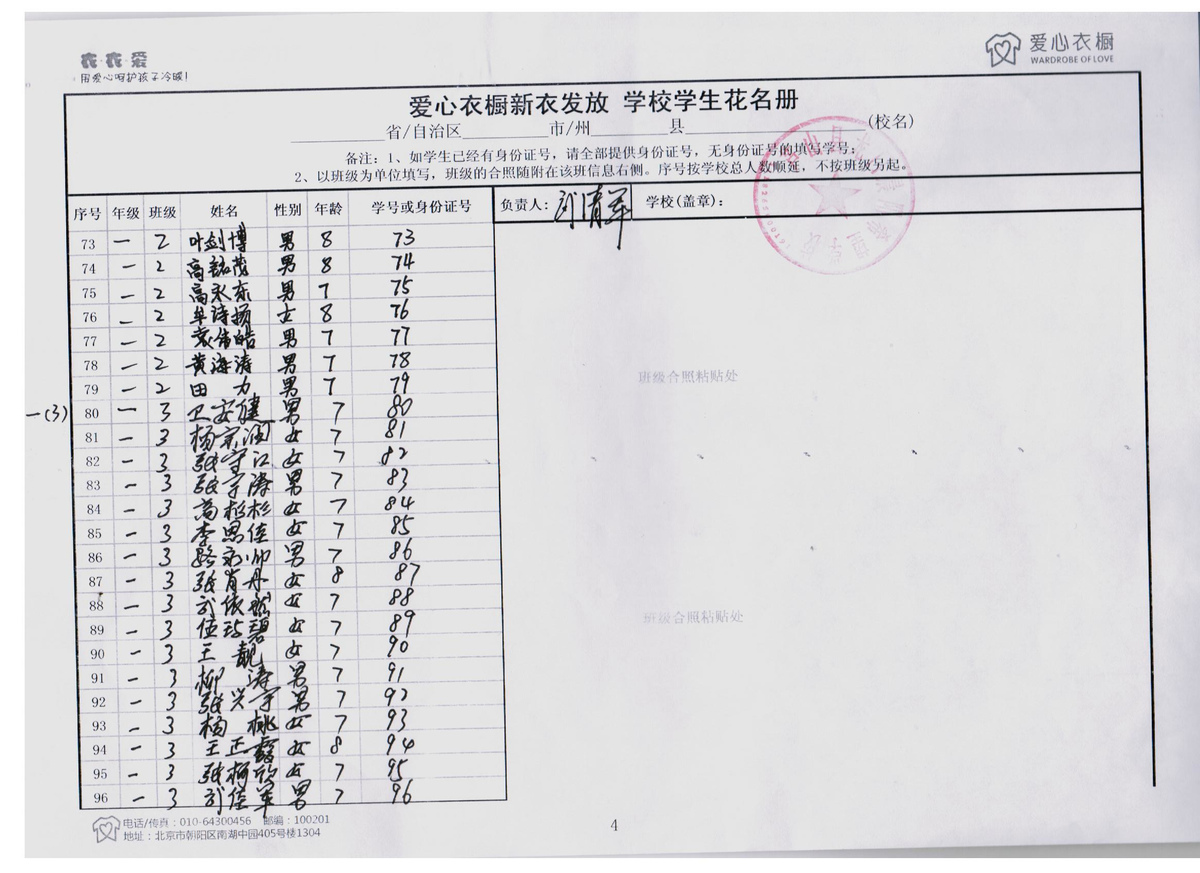 衣·衣·爱
用爱心呵护孩子冷暖!
爱心衣橱
WARDROBE OF LOVE
爱心衣橱新衣发放 学校学生花名册
省/自治区 市/州 县 (校名)
备注:1、如学生已经有身份证号,请全部提供身份证号,无身份证号的填写学号;
2、以班级为单位填写,班级的合照随附在该班信息右侧。序号按学校总人数顺延,不按班级另起。
序号 年级 班级 姓名 性别 年龄 学号或身份证号 负责人: 清军 学校(盖章):
73 一 2 叶剑博 男 8 73
74 一 2 高铭茂 男 8 74
75 一 2 高永东 男 7 75
76 一 2 牟诗扬 女 8 76
77 一 2 袁伟皓 男 7 77
78 一 2 黄海涛 男 7 78
79 一 2 田力 男 7 79
一(3) 80 一 3 卫安健 男 7 80
81 一 3 杨宗润 女 7 81
82 一 3 张守江 女 7 82
83 一 3 张宇涛 男 7 83
84 一 3 高彬杉 女 7 84
85 一 3 李思佳 女 7 85
86 一 3 路永帅 男 7 86
87 一 3 张肖丹 女 8 87
88 一 3 依 女 7 88
89 一 3 伍碧 女 7 89
90 一 3 王靓 女 7 90
91 一 3 柳涛 男 7 91
92 一 3 张兴宇 男 7 92
93 一 3 杨桃 女 7 93
94 一 3 王正霞 女 8 94
95 一 3 张柯欣 女 7 95
96 一 3 佳军 男 7 96
班级合照粘贴处
班级合照粘贴处
电话/传真:010-64300456 邮编:100201
地址:北京市朝阳区南湖中园405号楼1304
4